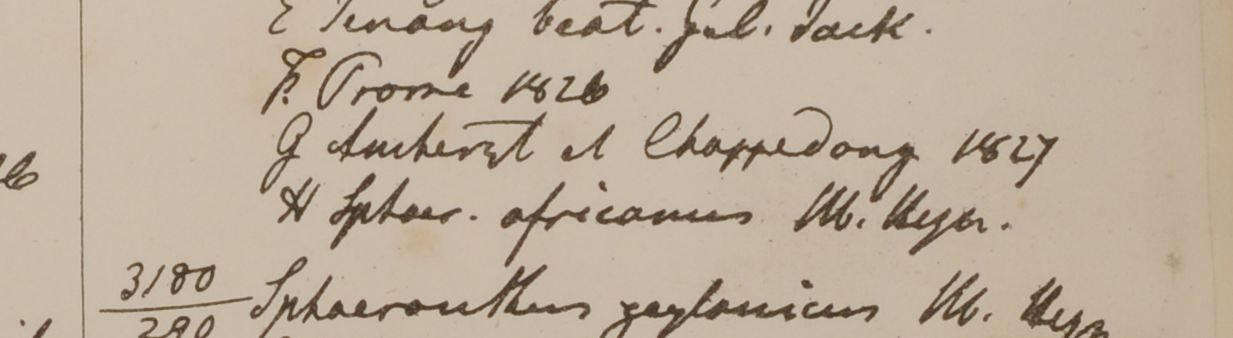 E Penang beat. Gul. Jack.
F. Prome 1826
G Amherst et Chappedong 1827
H Sphaer. africanus Hb. Heyn.
3180 Sphaeranthus zeylanicus Hb. Heyn
280